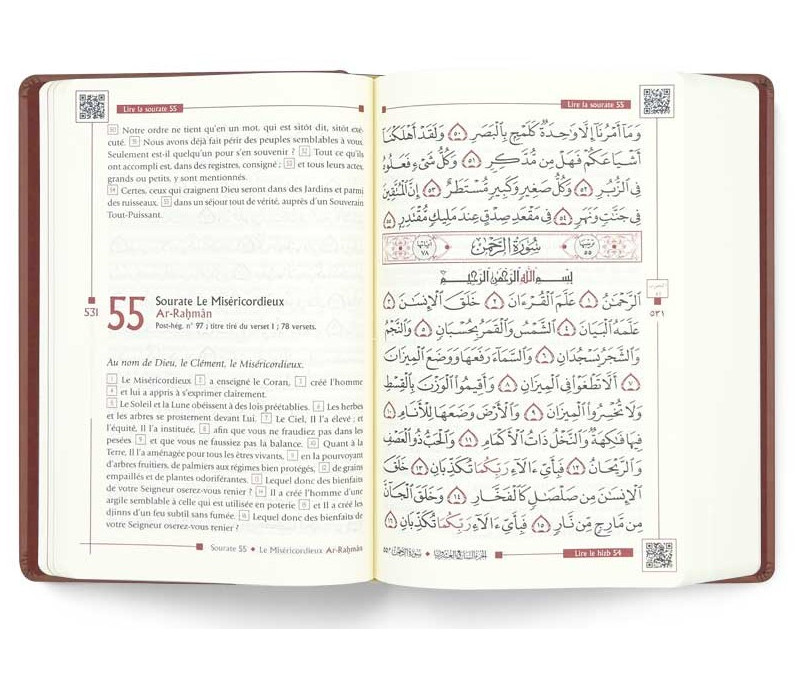 Lire la sourate 55
50 Notre ordre ne tient qu'en un mot, qui est sitôt dit, sitôt exé-
cuté. 51 Nous avons déjà fait périr des peuples semblables à vous.
Seulement est-il quelqu'un pour s'en souvenir ? 52 Tout ce qu'ils
ont accompli est, dans des registres, consigné ; 53 et tous leurs actes,
grands ou petits, y sont mentionnés.
54 Certes, ceux qui craignent Dieu seront dans des Jardins et parmi
des ruisseaux, 55 dans un séjour tout de vérité, auprès d'un Souverain
Tout-Puissant.
531
55
Sourate Le Miséricordieux
Ar-Raḥmân
Post-hég. n° 97 ; titre tiré du verset 1 ; 78 versets.
Au nom de Dieu, le Clément, le Miséricordieux.
1 Le Miséricordieux 2 a enseigné le Coran, 3 créé l'homme
4 et lui a appris à s'exprimer clairement.
5 Le Soleil et la Lune obéissent à des lois préétablies. 6 Les herbes
et les arbres se prosternent devant Lui. 7 Le Ciel, Il l'a élevé ; et
l'équité, Il l'a instituée, 8 afin que vous ne fraudiez pas dans les
pesées 9 et que vous ne faussiez pas la balance. 10 Quant à la
Terre, Il l'a aménagée pour tous les êtres vivants, 11 en la pourvoyant
d'arbres fruitiers, de palmiers aux régimes bien protégés, 12 de grains
empaillés et de plantes odoriférantes. 13 Lequel donc des bienfaits
de votre Seigneur oserez-vous renier ? 14 Il a créé l'homme d'une
argile semblable à celle qui est utilisée en poterie 15 et Il a créé les
djinns d'un feu subtil sans fumée. 16 Lequel donc des bienfaits de
votre Seigneur oserez-vous renier ?
Sourate 55 • Le Miséricordieux Ar-Raḥmân
Lire la sourate 55
وَمَآ أَمْرُنَآ إِلَّا وَٰحِدَةٌ كَلَمْحٍۭ بِٱلْبَصَرِ ٥٠ وَلَقَدْ أَهْلَكْنَآ
أَشْيَاعَكُمْ فَهَلْ مِن مُّدَّكِرٍ ٥١ وَكُلُّ شَىْءٍ فَعَلُوهُ
فِى ٱلزُّبُرِ ٥٢ وَكُلُّ صَغِيرٍ وَكَبِيرٍ مُّسْتَطَرٌ ٥٣ إِنَّ ٱلْمُتَّقِينَ
فِى جَنَّٰتٍ وَنَهَرٍ ٥٤ فِى مَقْعَدِ صِدْقٍ عِندَ مَلِيكٍ مُّقْتَدِرٍۭ ٥٥
ترتيبها ٥٥ سُورَةُ ٱلرَّحْمَٰن آياتها ٧٨
بِسْمِ ٱللَّهِ ٱلرَّحْمَٰنِ ٱلرَّحِيمِ
ٱلرَّحْمَٰنُ ١ عَلَّمَ ٱلْقُرْءَانَ ٢ خَلَقَ ٱلْإِنسَٰنَ ٣
عَلَّمَهُ ٱلْبَيَانَ ٤ ٱلشَّمْسُ وَٱلْقَمَرُ بِحُسْبَانٍ ٥ وَٱلنَّجْمُ
وَٱلشَّجَرُ يَسْجُدَانِ ٦ وَٱلسَّمَآءَ رَفَعَهَا وَوَضَعَ ٱلْمِيزَانَ
٧ أَلَّا تَطْغَوْا۟ فِى ٱلْمِيزَانِ ٨ وَأَقِيمُوا۟ ٱلْوَزْنَ بِٱلْقِسْطِ
وَلَا تُخْسِرُوا۟ ٱلْمِيزَانَ ٩ وَٱلْأَرْضَ وَضَعَهَا لِلْأَنَامِ ١٠
فِيهَا فَٰكِهَةٌ وَٱلنَّخْلُ ذَاتُ ٱلْأَكْمَامِ ١١ وَٱلْحَبُّ ذُو ٱلْعَصْفِ
وَٱلرَّيْحَانُ ١٢ فَبِأَىِّ ءَالَآءِ رَبِّكُمَا تُكَذِّبَانِ ١٣ خَلَقَ
ٱلْإِنسَٰنَ مِن صَلْصَٰلٍ كَٱلْفَخَّارِ ١٤ وَخَلَقَ ٱلْجَآنَّ
مِن مَّارِجٍ مِّن نَّارٍ ١٥ فَبِأَىِّ ءَالَآءِ رَبِّكُمَا تُكَذِّبَانِ ١٦
٥٣١
Lire le hizb 54